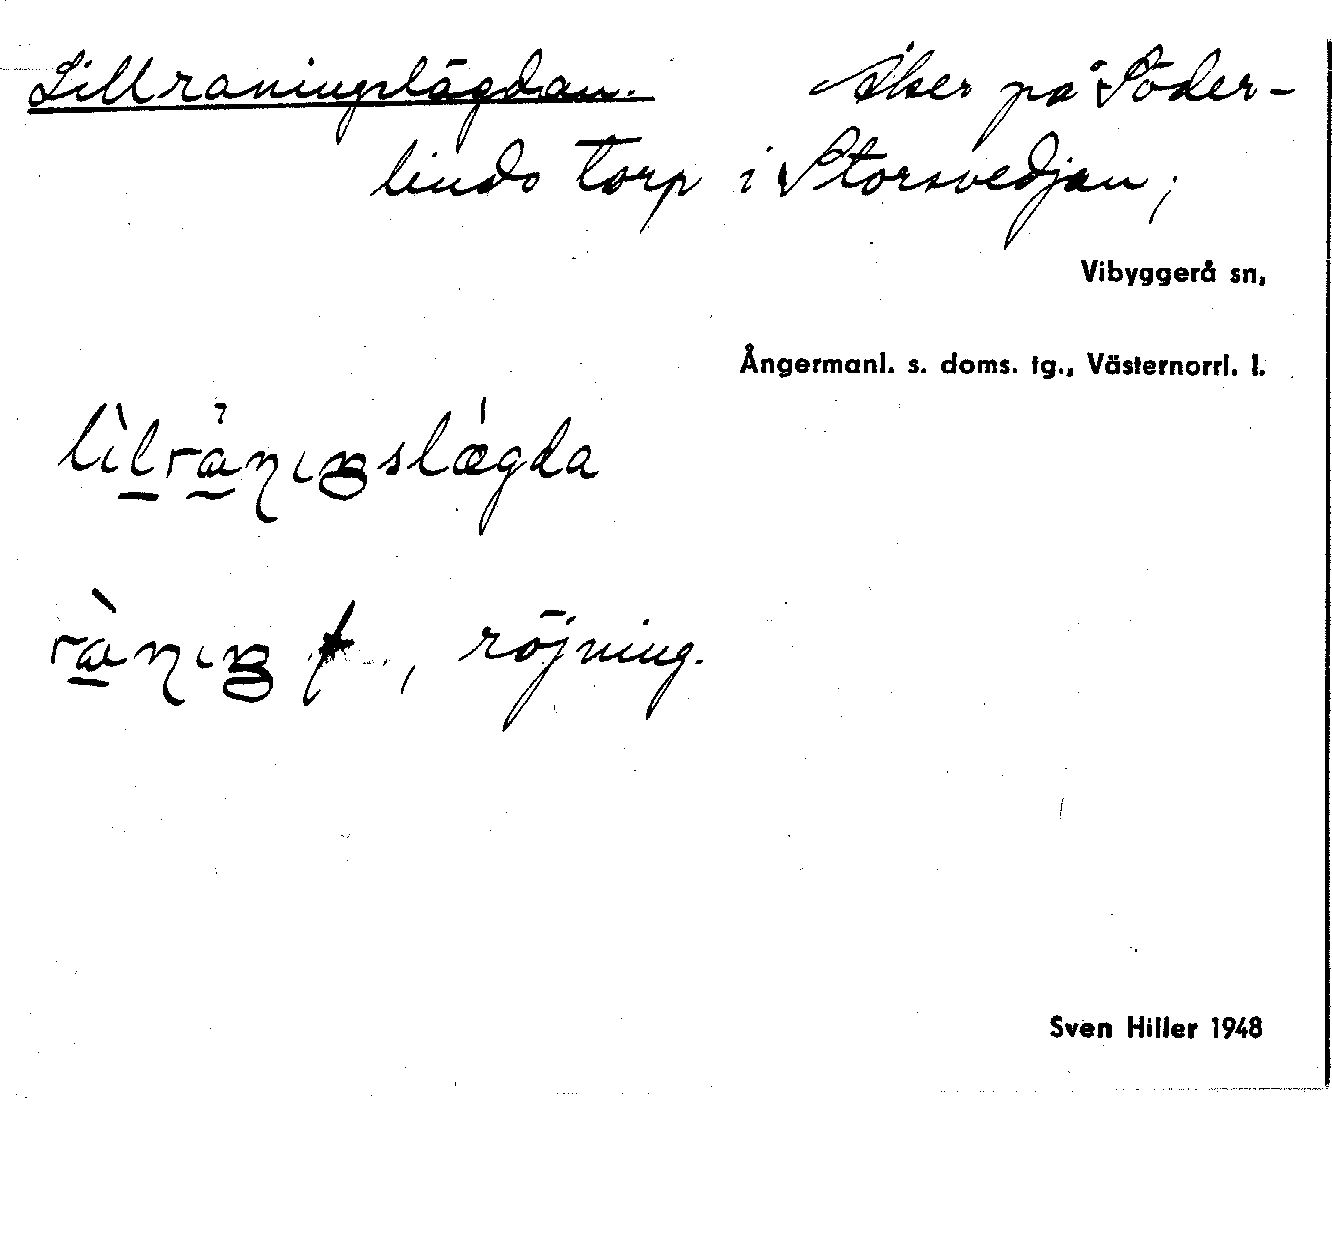 Lillraningslägdan. Åker på Söder-
linds torp i Storsvedjan,
Vibyggerå sn,
Ångermanl. s. doms. tg., Västernorrl. l.
röjning.
Sven Hiller 1948